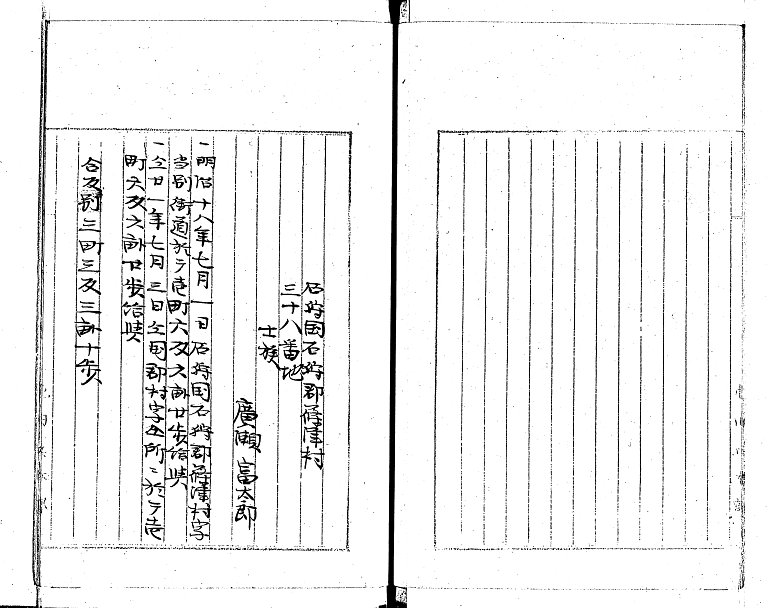 石狩国石狩郡篠津村
三十八番地
士族
廣瀬富太郎
一明治十八年七月一日石狩国石狩郡篠津村字
当別街道於テ壱町六反六畝廿歩給與
一仝廿一年七月三日仝国郡村字仝所ニ於テ壱
町六反六畝廿歩給與
合反別三町三反三畝十歩